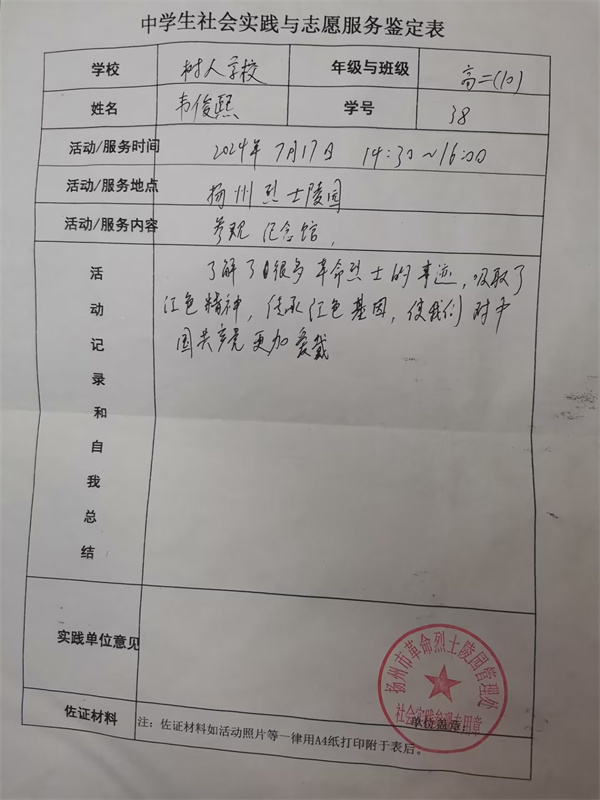 中学生社会实践与志愿服务鉴定表
学校 树人学校 年级与班级 高二(10)
姓名 韦俊熙 学号 38
活动/服务时间 2024年7月17日 14:30~16:00
活动/服务地点 扬州烈士陵园
活动/服务内容 参观纪念馆,
活动记录和自我总结
了解了很多革命烈士的事迹,吸取了
红色精神,传承红色基因,使我们对中
国共产党更加爱戴
实践单位意见
扬州市革命烈士陵园管理处
社会实践参观专用章
单位盖章:
佐证材料 注:佐证材料如活动照片等一律用A4纸打印附于表后。